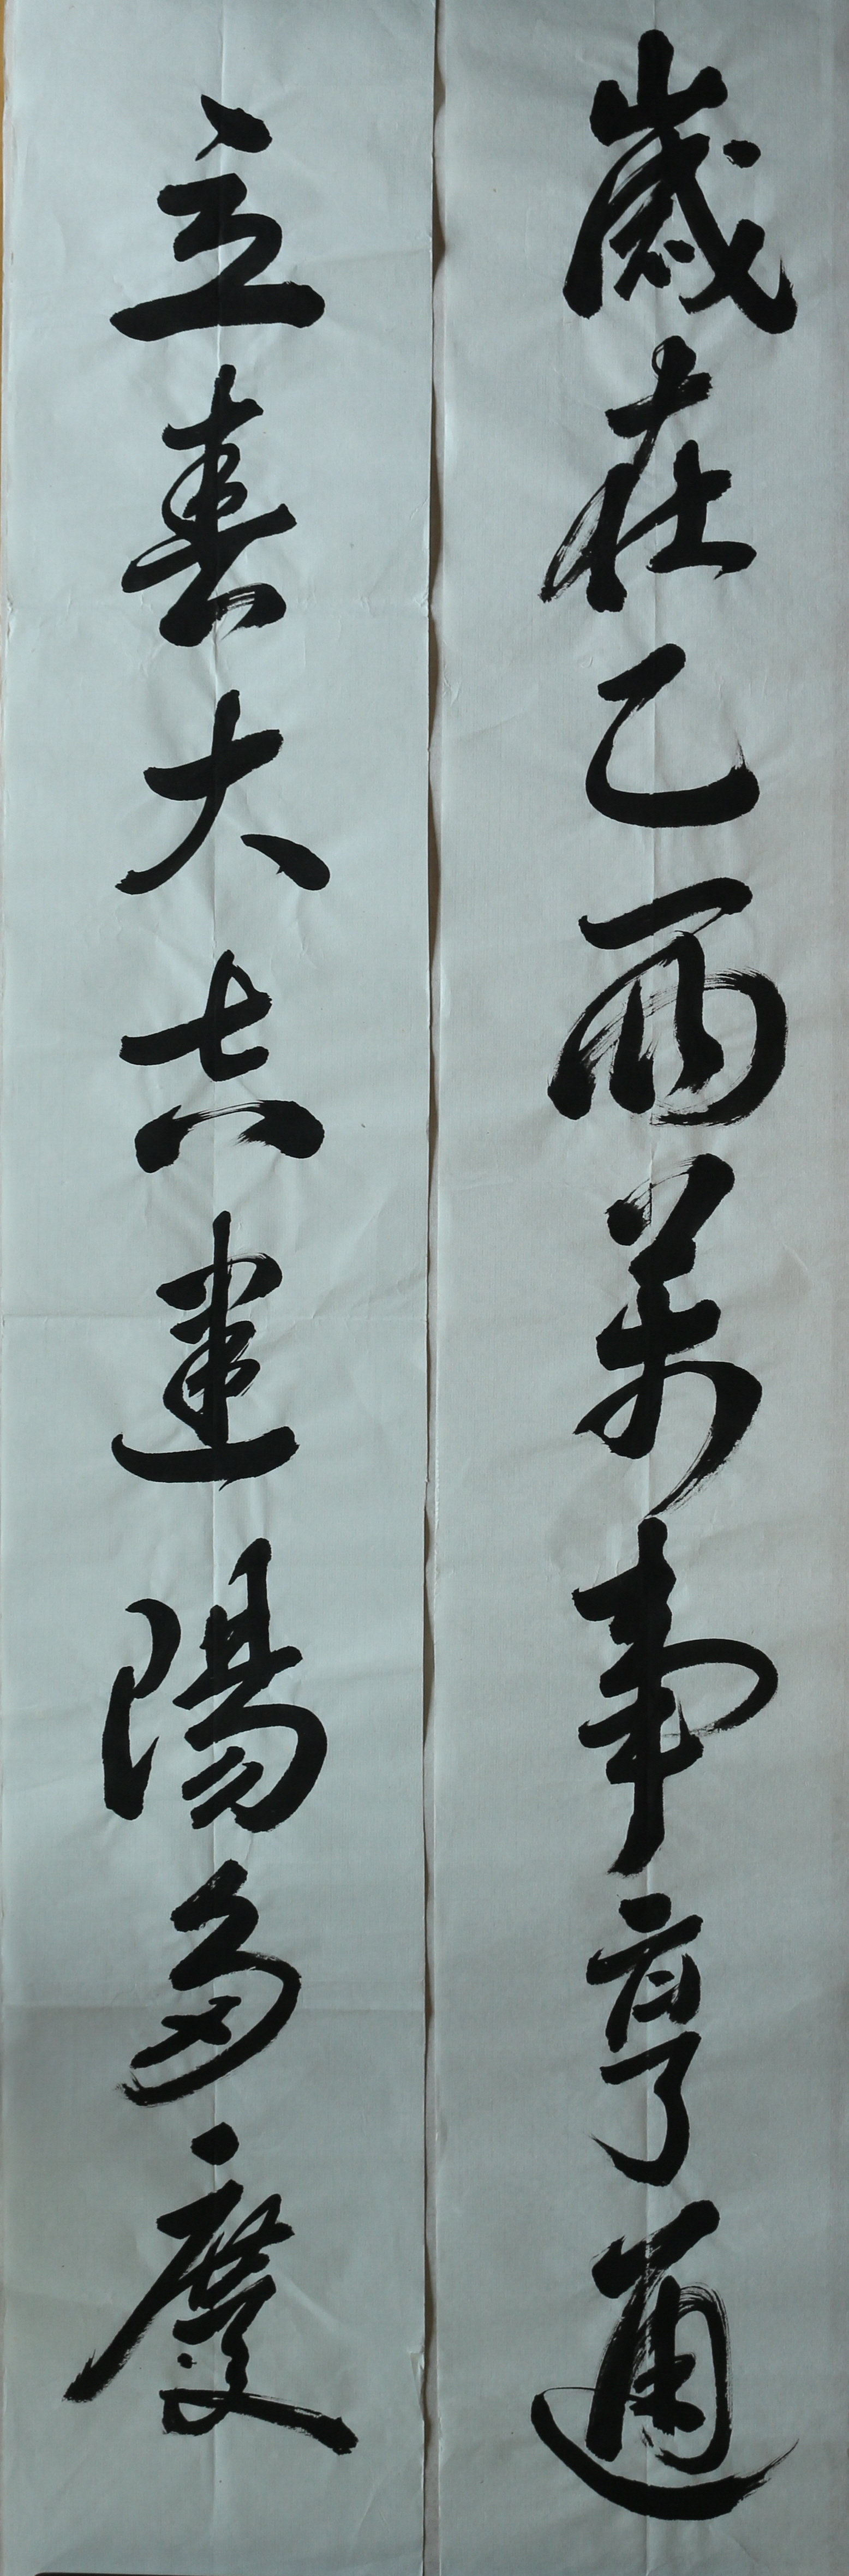 歲在乙酉萬事亨通
立春大吉建陽多慶